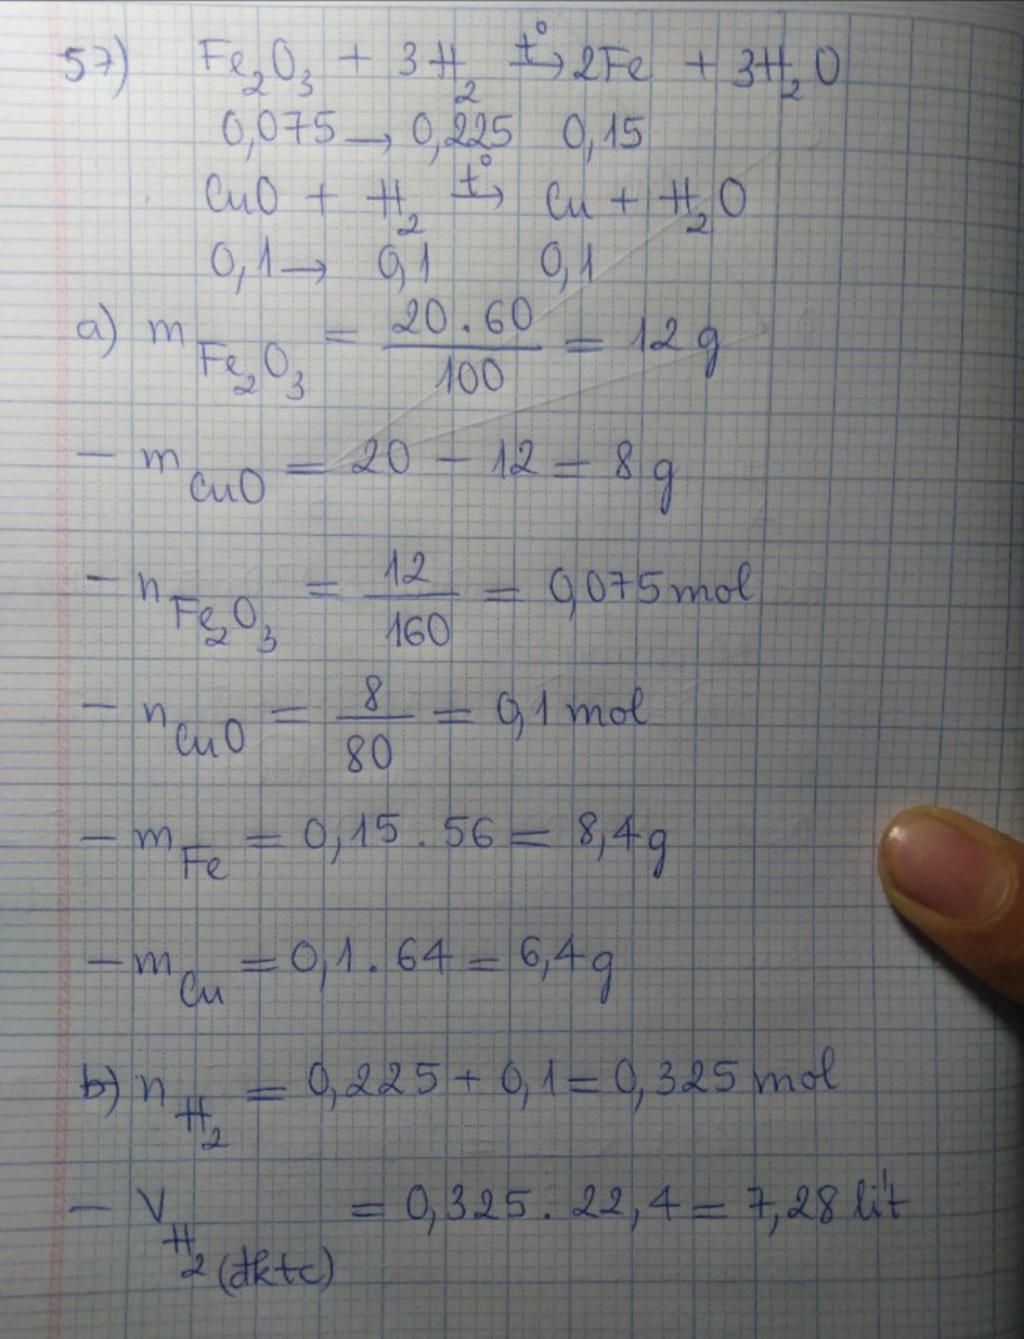 57) Fe₂O₃ + 3H₂ t°→ 2Fe + 3H₂O
0,075 → 0,225 0,15
CuO + H₂ t°→ Cu + H₂O
0,1 → 0,1 0,1
a) m Fe₂O₃ = 20.60/100 = 12g
- m CuO = 20 - 12 = 8g
- n Fe₂O₃ = 12/160 = 0,075mol
- n CuO = 8/80 = 0,1 mol
- m Fe = 0,15.56 = 8,4g
- m Cu = 0,1.64 = 6,4g
b) n H₂ = 0,225 + 0,1 = 0,325 mol
- V H₂ (đktc) = 0,325.22,4 = 7,28 lít